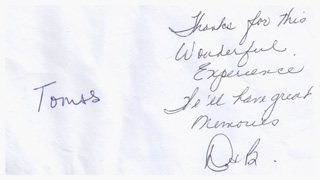 Tomas
Thanks for this
Wonderful.
Experience
We'll have great
Memories
Deb.